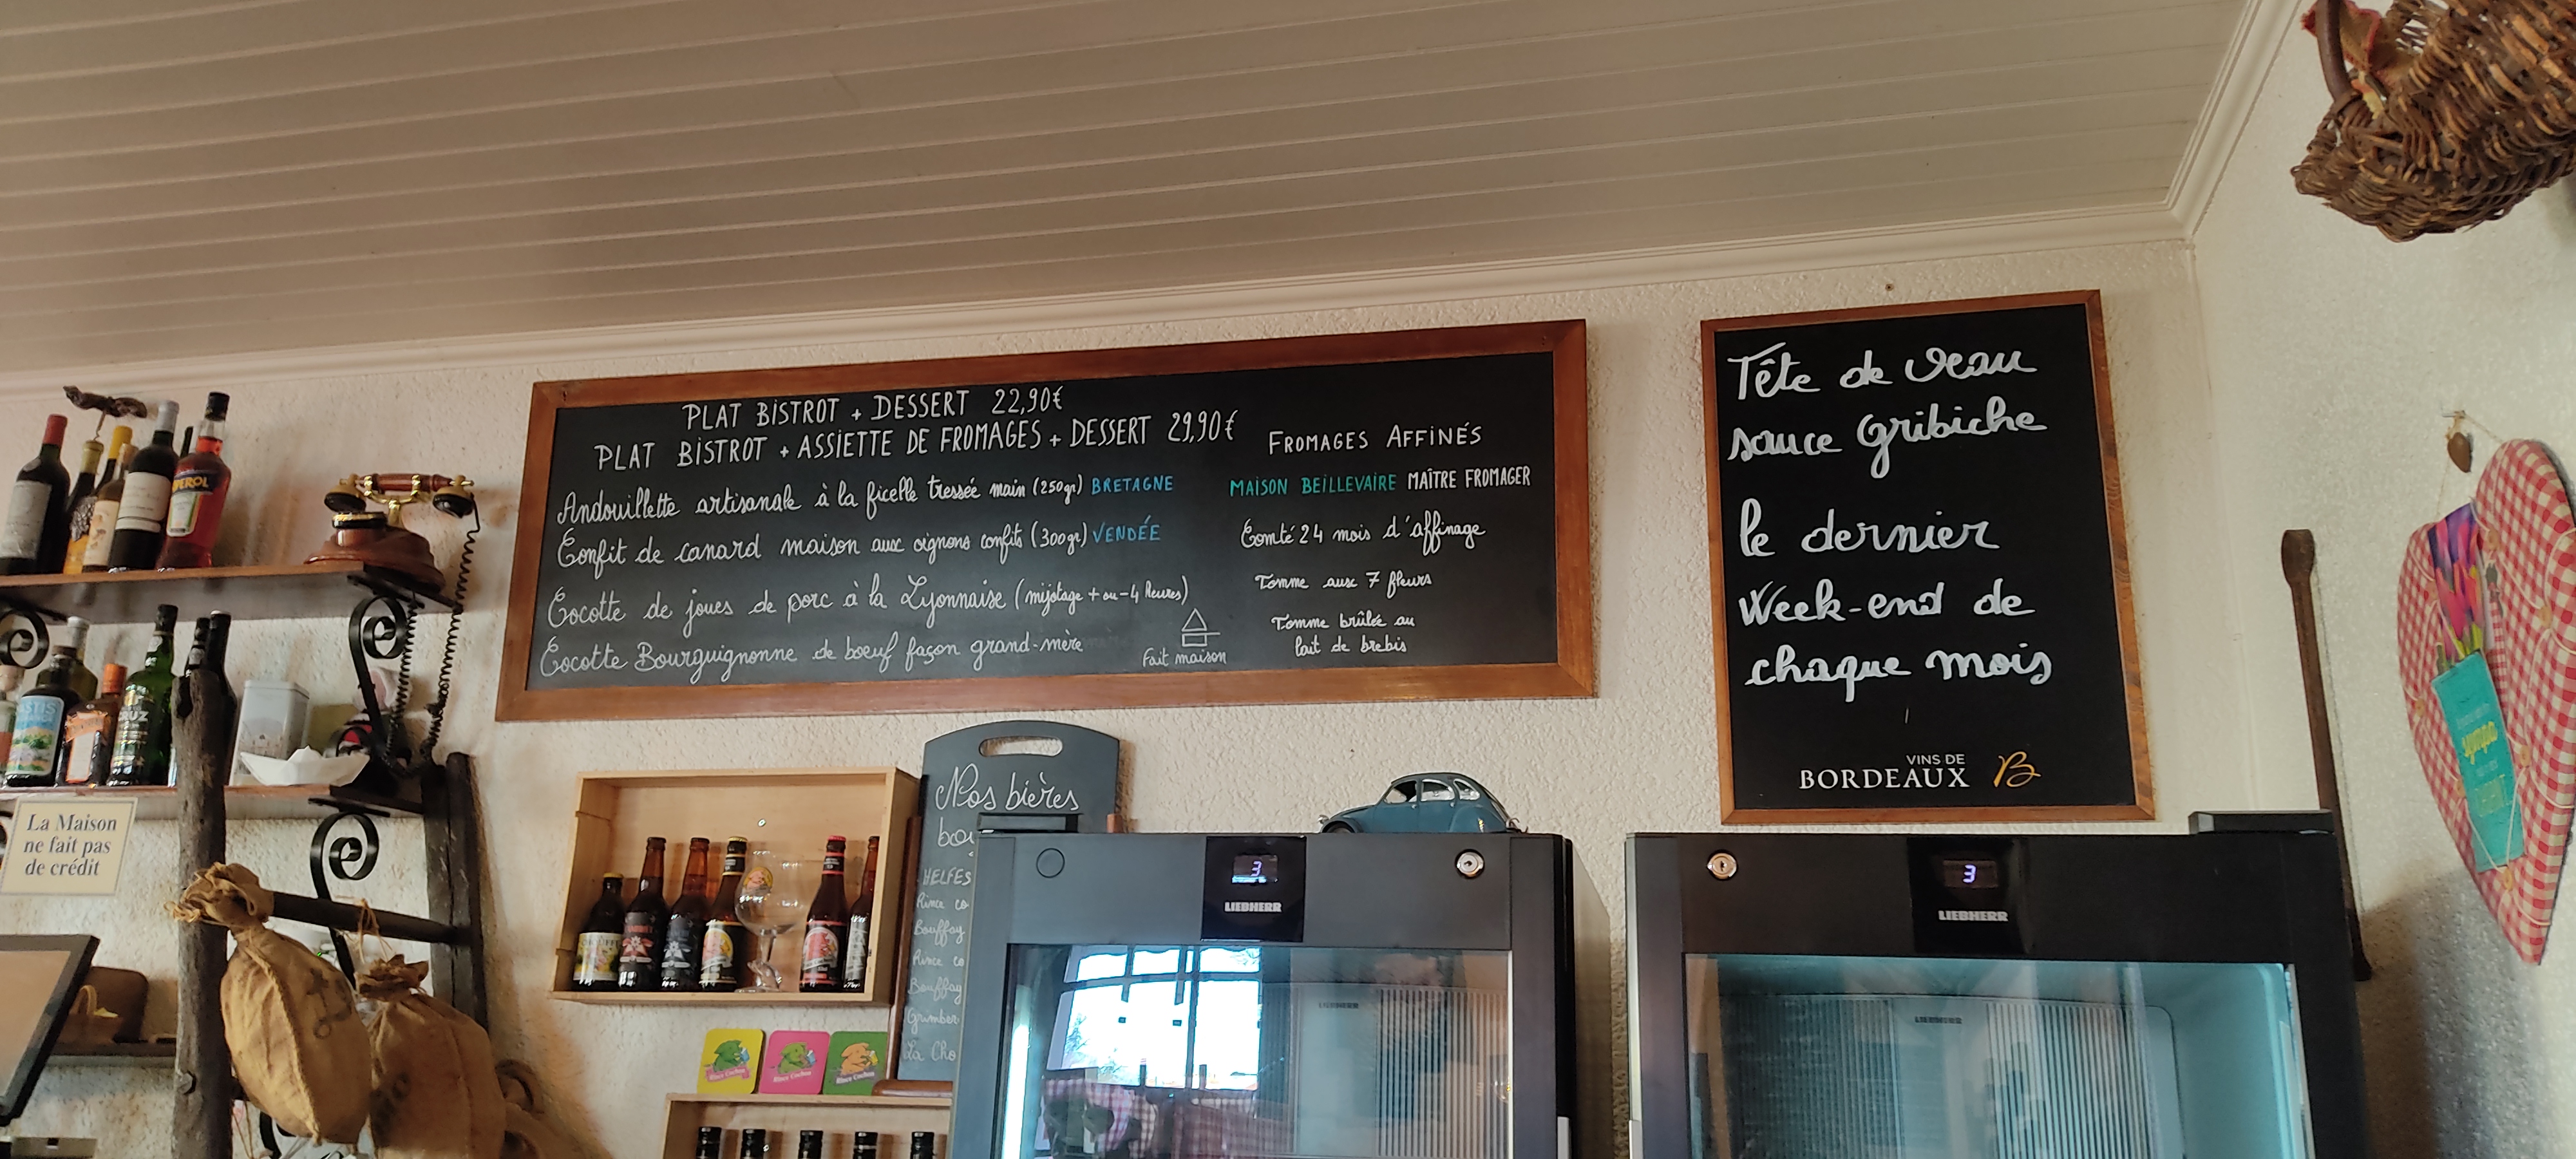 PLAT BISTROT + DESSERT 22,90€
PLAT BISTROT + ASSIETTE DE FROMAGES + DESSERT 29,90€
Andouillette artisanale à la ficelle tressée main (250gr) BRETAGNE
Confit de canard maison aux oignons confits (300gr) VENDÉE
Cocotte de joues de porc à la Lyonnaise (mijotage + ou - 4 heures)
Cocotte Bourguignonne de boeuf façon grand-mère
Fait maison
FROMAGES AFFINÉS
MAISON BEILLEVAIRE MAÎTRE FROMAGER
Comté 24 mois d'affinage
Tomme aux 7 fleurs
Tomme brûlée au
lait de brebis
Tête de veau
sauce Gribiche
le dernier
Week-end de
chaque mois
VINS DE
BORDEAUX B
La Maison
ne fait pas
de crédit
Nos bières
HELFES
Rince co
Bouffay
Rince co
Bouffay
Grimber
La Cho
3
LIEBHERR
LIEBHERR
3
LIEBHERR
LIEBHERR
Rince Cochon
Rince Cochon
Rince Cochon